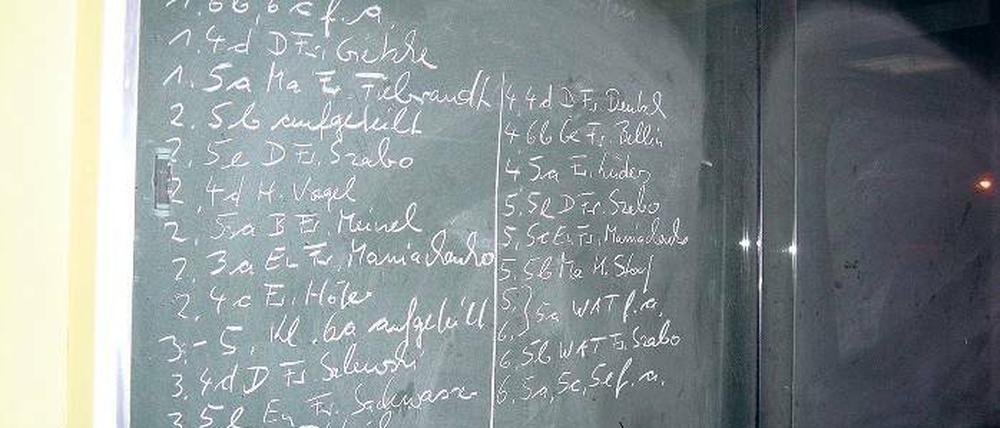 1. 6b, 6c f. a.
1. 4d D Fr.
1. 5a Ma Fr. Fiebrandt
2. 5b aufgeteilt
2. 5e D Fr. Szabo
2. 4d H. Vogel
2. 5a B Fr. Meinel
2. 3a En Fr.
2. 4c Fr.
3.-5. Kl. 6a aufgeteilt
3. 4d D Fr. Salewski
3. 5e En Fr.
4. 4d D Fr.
4. 6b Ge Fr. Bellin
4. 5a Fr. Lüder
5. 5e D Fr. Szabo
5. 5c En Fr.
5. 5b Ma H.
5. } 5a WAT f. a.
6.
6. 5b WAT Fr. Szabo
6. 5a, 5c, 5e f. a.